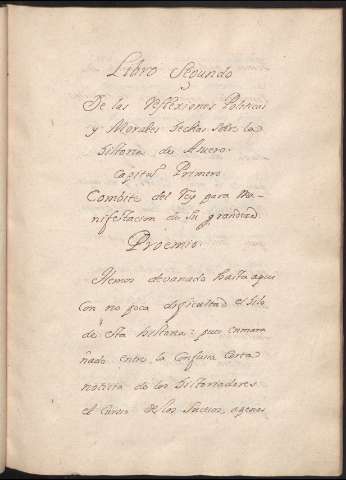 Libro Segundo
De las reflexiones Politicas
y Morales hechas sobre la
historia de Asuero.
Capitulo Primero
Combite del Rey para Ma-
nifestacion de su grandeza
Proemio.
Hemos devanado hasta aqui
con no poca dificultad el hilo
de esta historia: pues enmara
ñado entre la confusa corta
noticia de los Historiadores
el curso de los sucesos, apenas